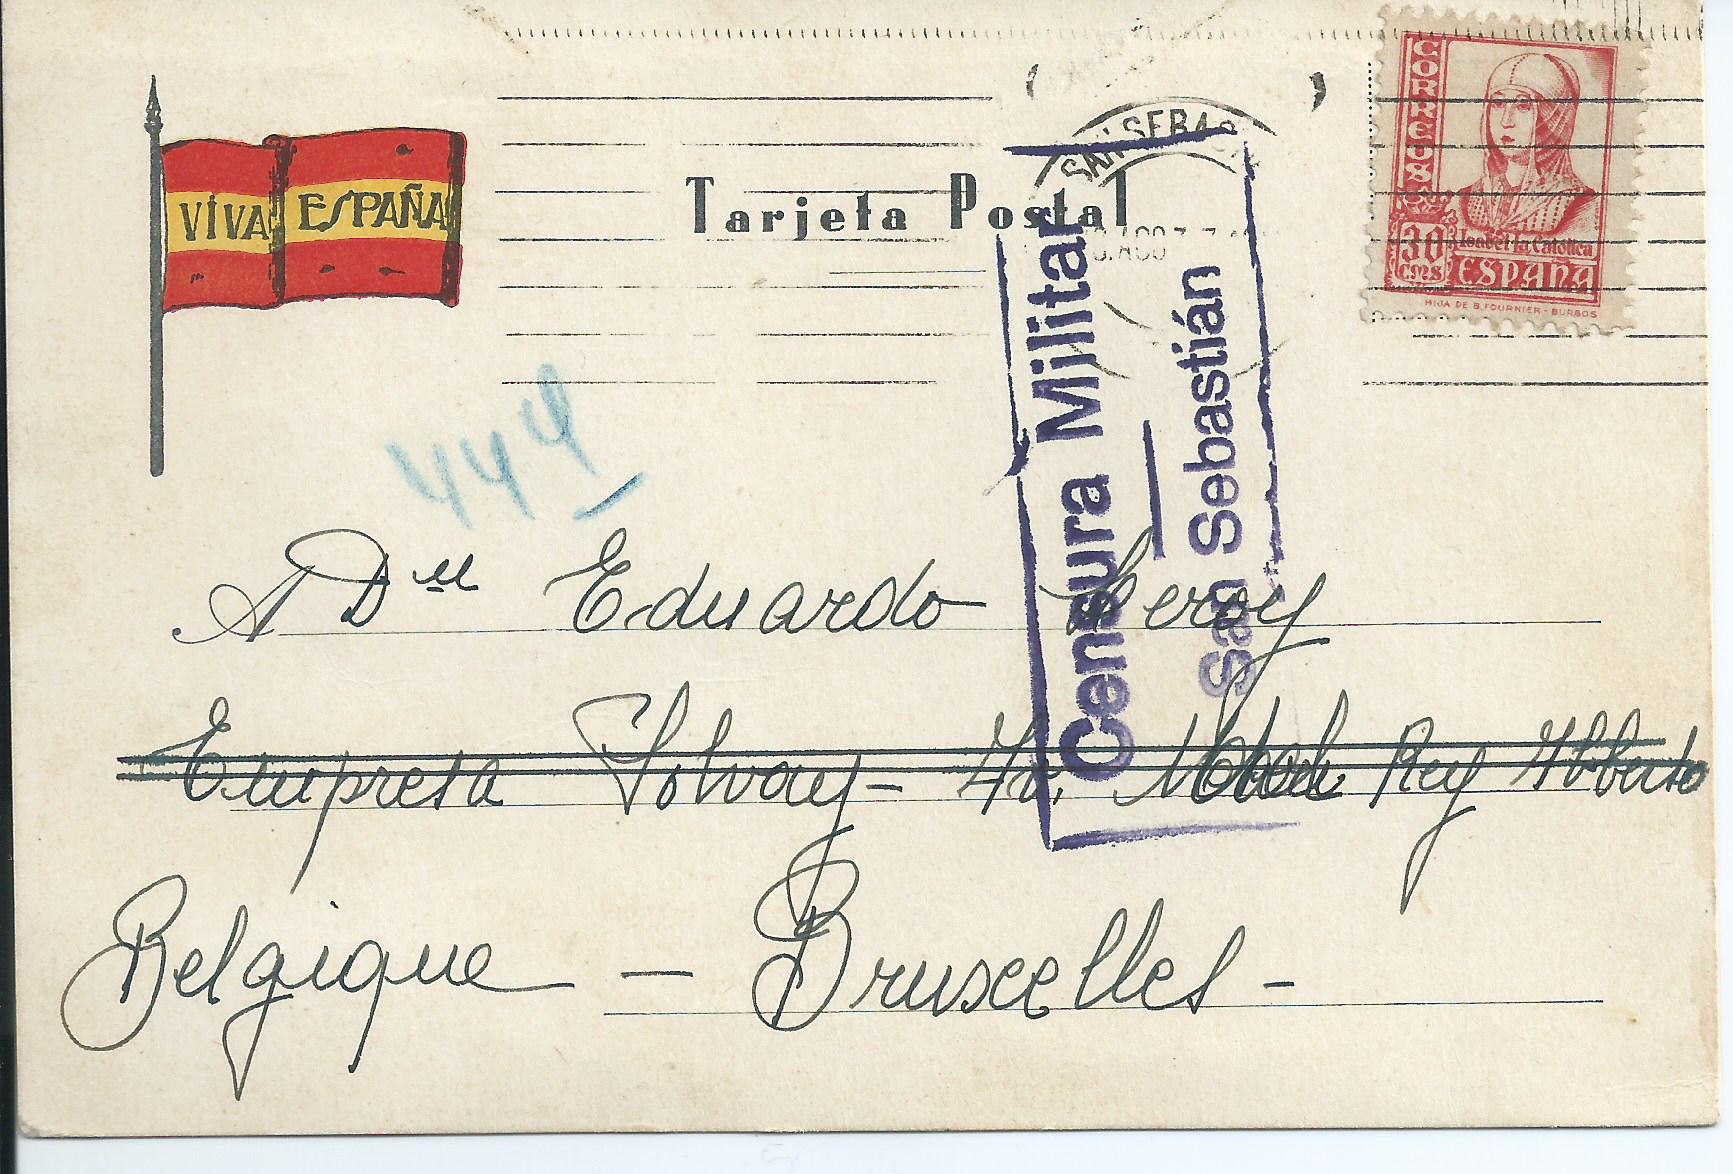 VIVA ESPAÑA
Tarjeta Postal
SAN SEBAS
CORREOS
30 cms
Isabel la Católica
ESPAÑA
HIJA DE B. FOURNIER - BURGOS
Censura Militar
San Sebastián
444
A Dn Eduardo Leroy
Empresa Solvay - Av. Rey Alberto
Belgique - Bruxelles -